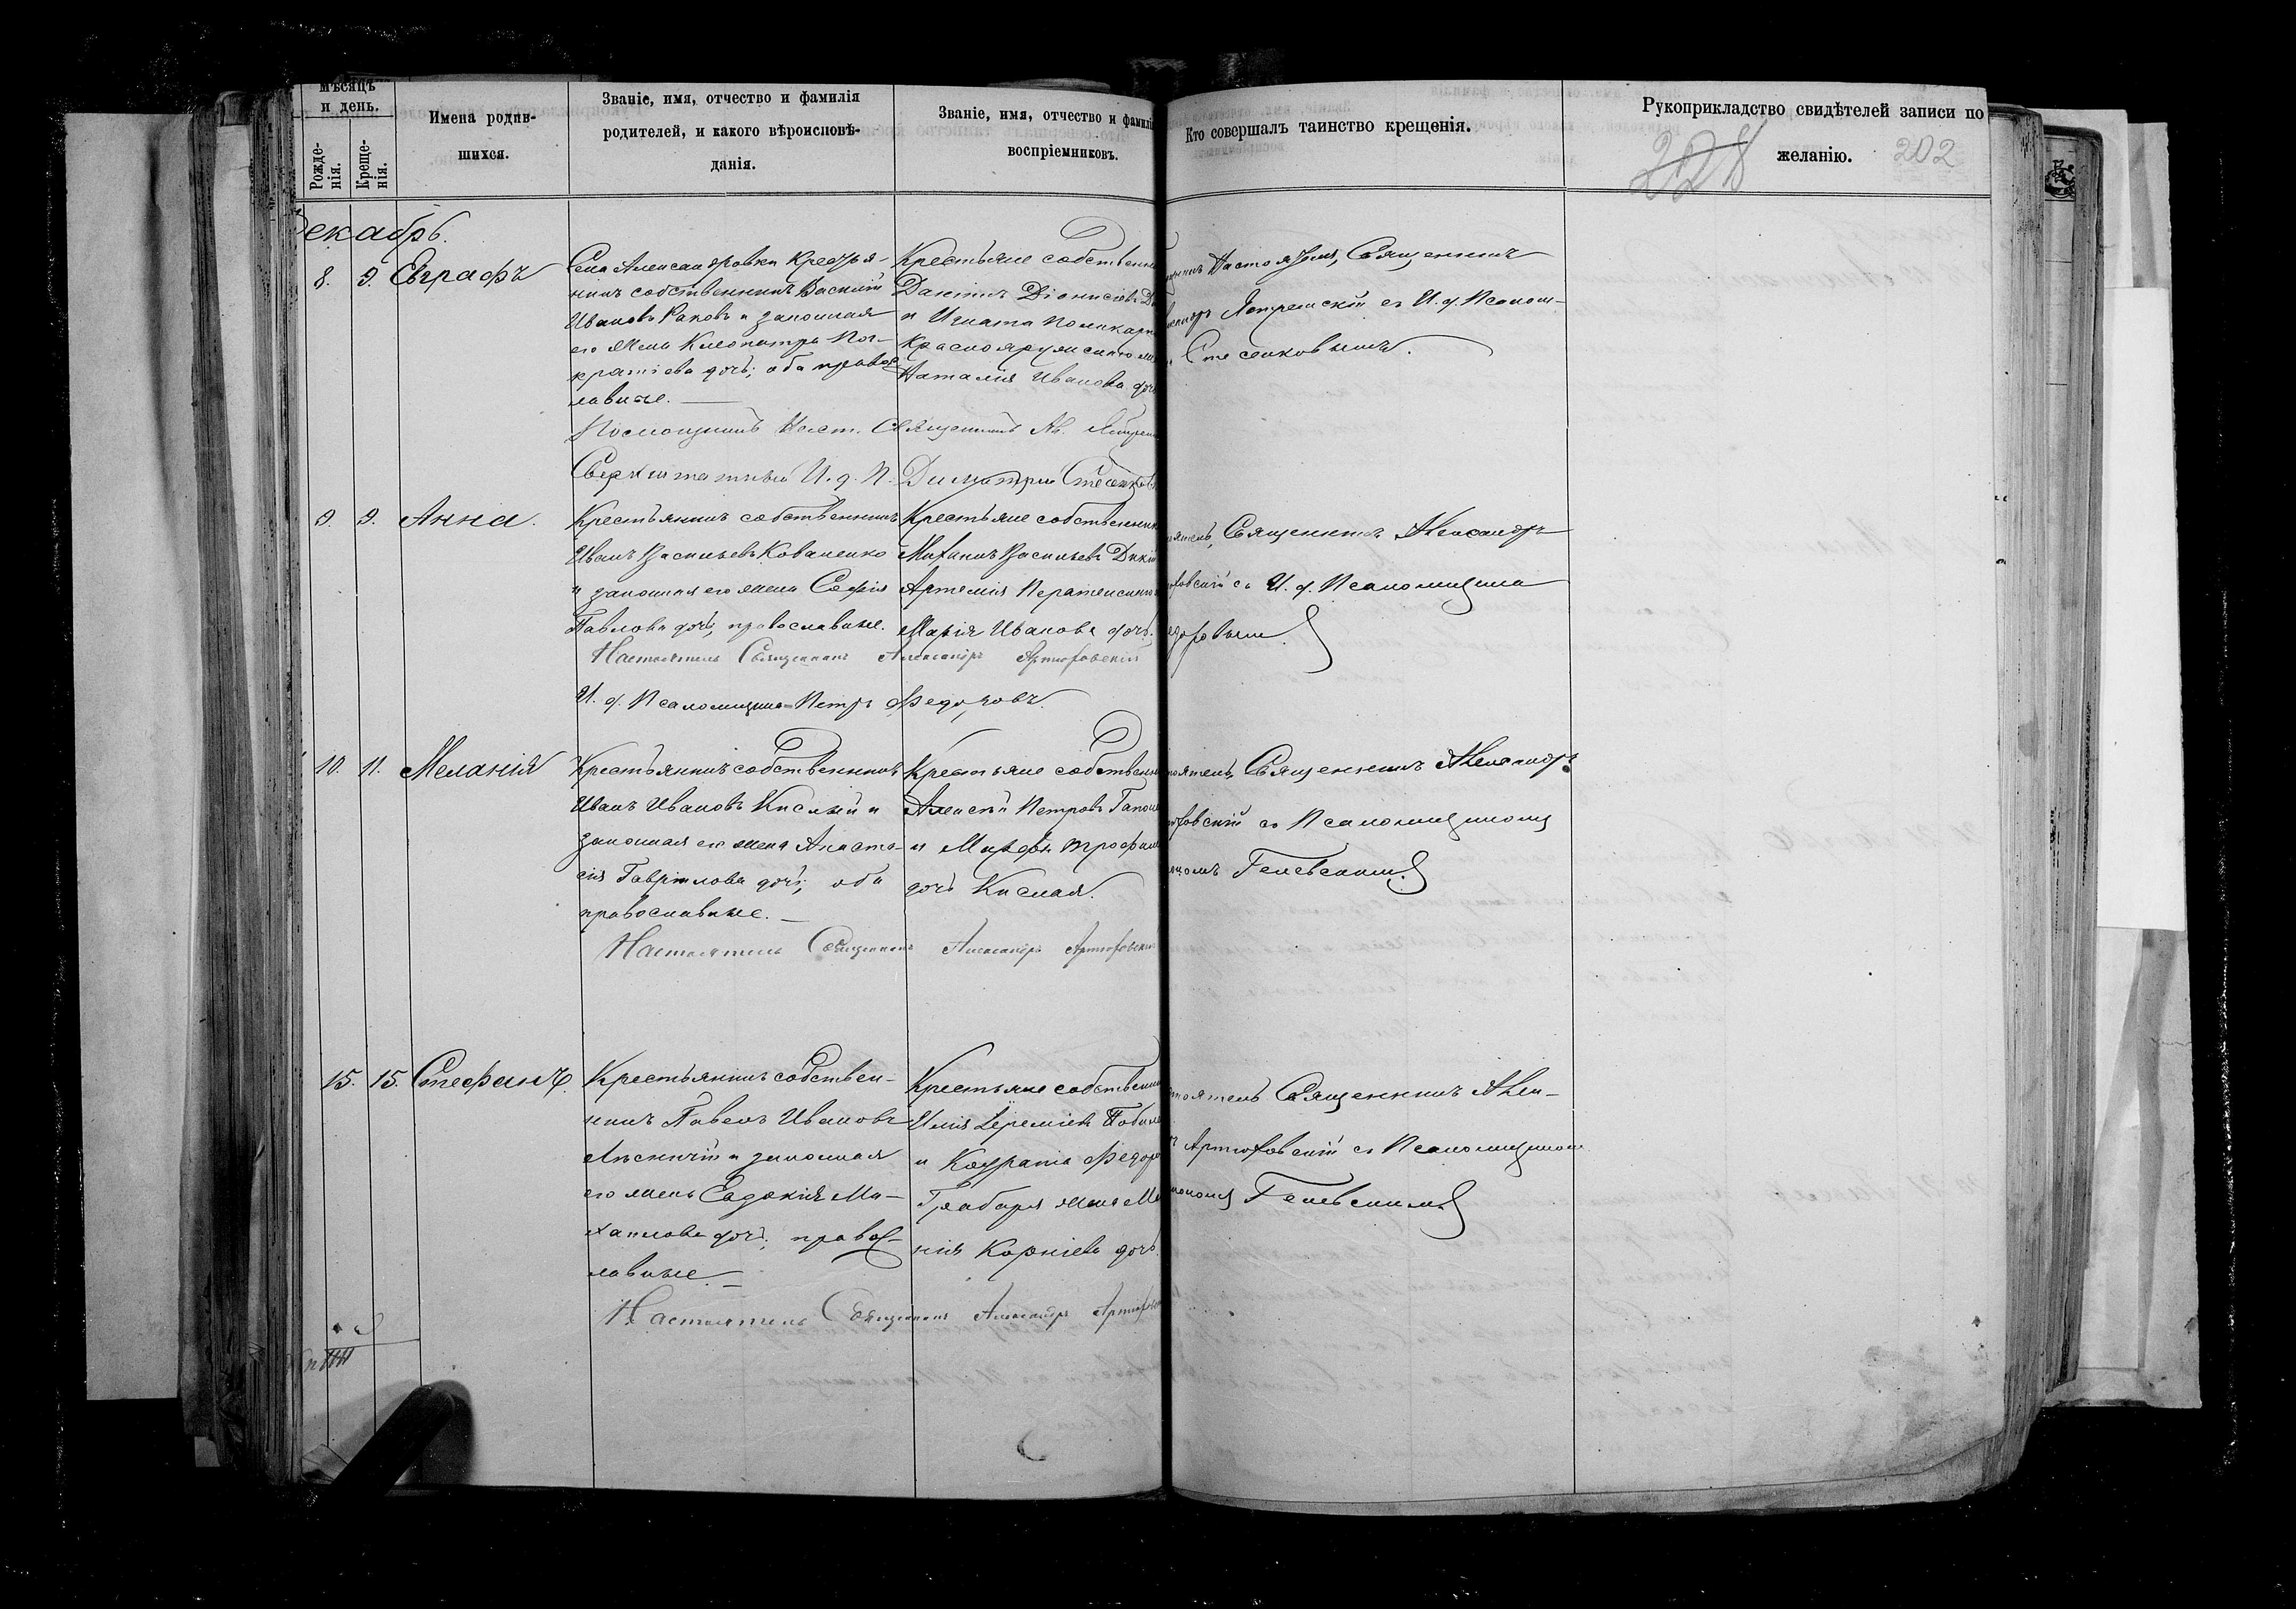 Мѣсяцъ
и день.
Рожде-
нія.
Креще-
нія.
Имена родив-
шихся.
Званіе, имя, отчество и фамилія
родителей, и какого вѣроисповѣ-
данія.
Званіе, имя, отчество и фамилія
воспріемниковъ.
Кто совершалъ таинство крещенія.
Рукоприкладство свидѣтелей записи по
желанію.
228
202
Декабрь.
8. 9. Евграфъ
Села Александровки Крестья-
нинъ собственникъ Василій
Ивановъ Раковъ и законная
его жена Клеопатра
дочь; оба правос-
лавные.
Крестьяне собственн
Даніилъ Діонисіевъ
и Игнатія Поликарп
Наталія Иванова дочь
Настоятеля, Священникъ
Ястремскій съ И. д. Псалом-
Стесенковымъ.
Помощникъ Наст. Священникъ Ал.
Сверхштатный И. д. П. Димитрій Стесенков
9. 9. Анна.
Крестьянинъ собственникъ
Иванъ Васильевъ Коваленко
и законная его жена Софія
Павлова дочь, православные.
Крестьяне собственник
Михаилъ Васильевъ Дикій
Артемія
Марія Иванова дочь.
Священникъ Александръ
съ И. д. Псаломщика
Настоятель Священникъ Александръ Артюховскій
И. д. Псаломщика Петръ Федоровъ.
10. 11. Меланія
Крестьянинъ собственникъ
Иванъ Ивановъ Кислый и
законная его жена Анаста-
сія Гавріилова дочь; оба
православные.
Крестьяне собственн
Алексѣй Петровъ
и Марфа Трофим
дочь Кислая.
Священникъ Александръ
съ Псаломщикомъ
Настоятель Священникъ Александръ Артюховскій
15. 15. Стефанъ.
Крестьянинъ собствен-
никъ Павелъ Ивановъ
и законная
его жена Евдокія Ми-
хаилова дочь; правос-
лавные.
Крестьяне собственни
Илія Іереміевъ
и Кондратія Федор
Грабаря жена Ме
нія Корніева дочь.
Священникъ Алек-
Артюховскій съ Псаломщиком
Настоятель Священникъ Александръ Артюхов